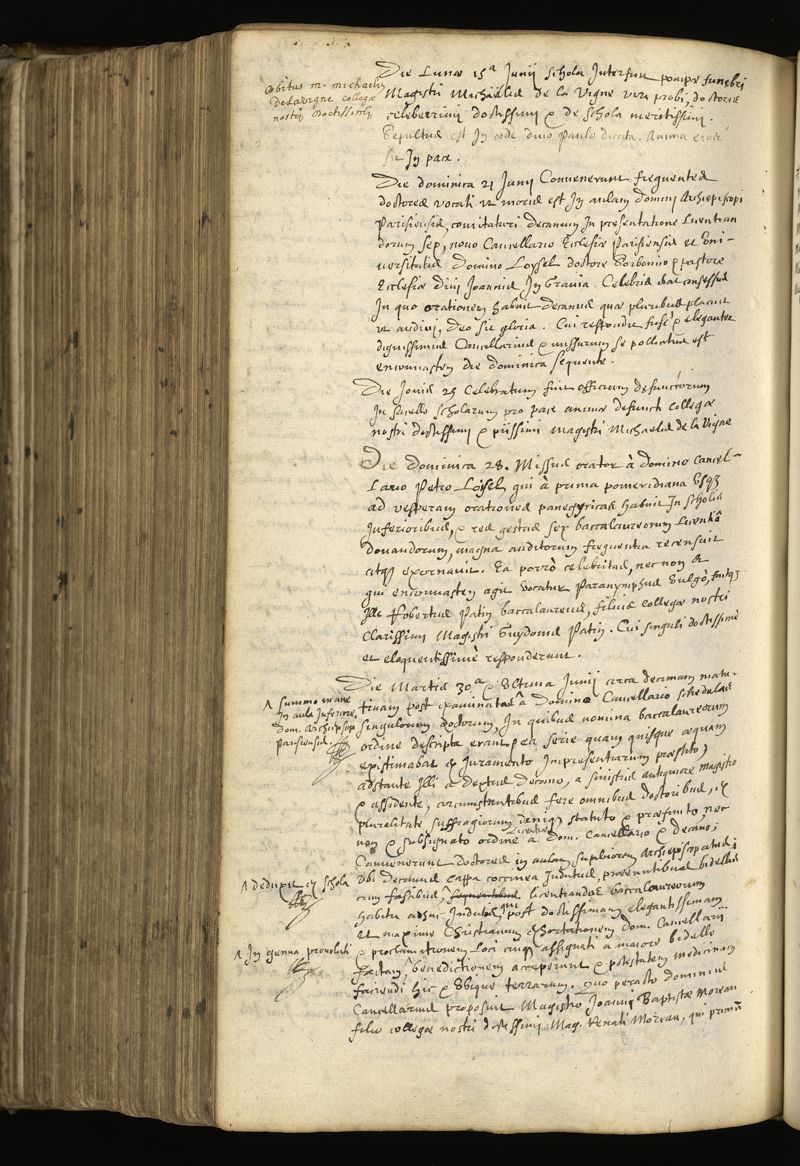 obitus m. michaelis
Delavigne collegæ
nostri doctissimi
Die Lunæ 15ª Junij schola Interfuit pompæ funebri
Magistri Michaëlis de la Vigne viri probi, doctoris
celeberrimi doctissimi & de schola meritissimi.
Sepultus est In æde divo Paulo dicata. Anima eius
sit In pace.
Die dominica 21 Junij Convenerunt frequentes
doctores vocati ut moris est In aulam domini Archiepiscopi
Parisiensis, comitaturi decanum In presentatione Licentian
dorum sex, novo Cancellario Ecclesiæ Parisiensis et Uni-
versitatis Domino Loysel doctore Sorbonico & pastore
Ecclesiæ divi Joannis In Gravia. Celebris erat consessus
In quo orationem habuit decanus quæ pluribus placuit
ut audivi, Deo sit gloria. Cui respondit fusè & eleganter
dignissimus Cancellarius & missurum se pollicitus est
encomiasten die dominica sequente.
Die Jovis 25 Celebratum fuit officium defunctorum
In sacello scholarum pro pace animæ defuncti collegæ
nostri doctissimi & piissimi Magistri Michaelis de la Vigne
Die dominica 28. Missus orator à domino Cancel-
lario Petro Loisel qui à prima pomeridiana usq3
ad vesperam orationes panegyricas habuit In scholis
Inferioribus, & res gestas sex baccalaureorum Licentiâ
donandorum, magna auditorum frequentia recensuit
atq3 exornavit. Ea porrò celebritas, nec non &
qui encomiasten agit vocatur Paranymphus vulgò, fuitq3
Ille Robertus Patin baccalaureus, filius collegæ nostri
clarissimi Magistri Guydonis Patin. Cui singuli doctissimè
et eloquentissimè responderunt.
Die Martis 30.ª & Ultima Junij circa decimam matu-
^ summo mane
In aula Inferiore
dom. Archiepiscop
Parisiensis.
tinam post examinatas à Domino Cancellario schedulas
singulorum doctorum, In quibus nomina baccalaureorum
ordine descripta erant, ea serie quam quisque æquam
existimabat ex juramento Impresentiarum præstito)
adstante Illi à dextris decano, a sinistris antiquiore magistro
& assidente, circumstantibus fere omnibus doctoribus, ex
pluralitate suffragiorum deniq3 statuto & præfinito, nec
non & subsignato ordine Licentiæ a dom. Cancellario & decano;
Convenerunt doctores in aulam superiorem Archiepiscopatus;
^ deduxit ex schola
Ubi decanus cappa coccinea Indutus, præeuntibus bidellis
cum fascibus, ^ sequentibus licentiandos baccalaureorum
habitu adhuc Indutos, qui post doctissimam elegantissimam
et maxime Christianam exhortationem dom. Cancellarij
^ In genua provoluti
& proclamationem loci cuiq3 assignati a maiore bidello
factam, ^ benedictionem acceperunt & potestatem medicinam
faciendi hic & Ubique terrarum. Quo peracto dominus
Cancellarius proposuit Magistro Joanni Baptistæ Moreau
filio collegæ nostri doctissimi Mag. Renati Moreau, qui primus